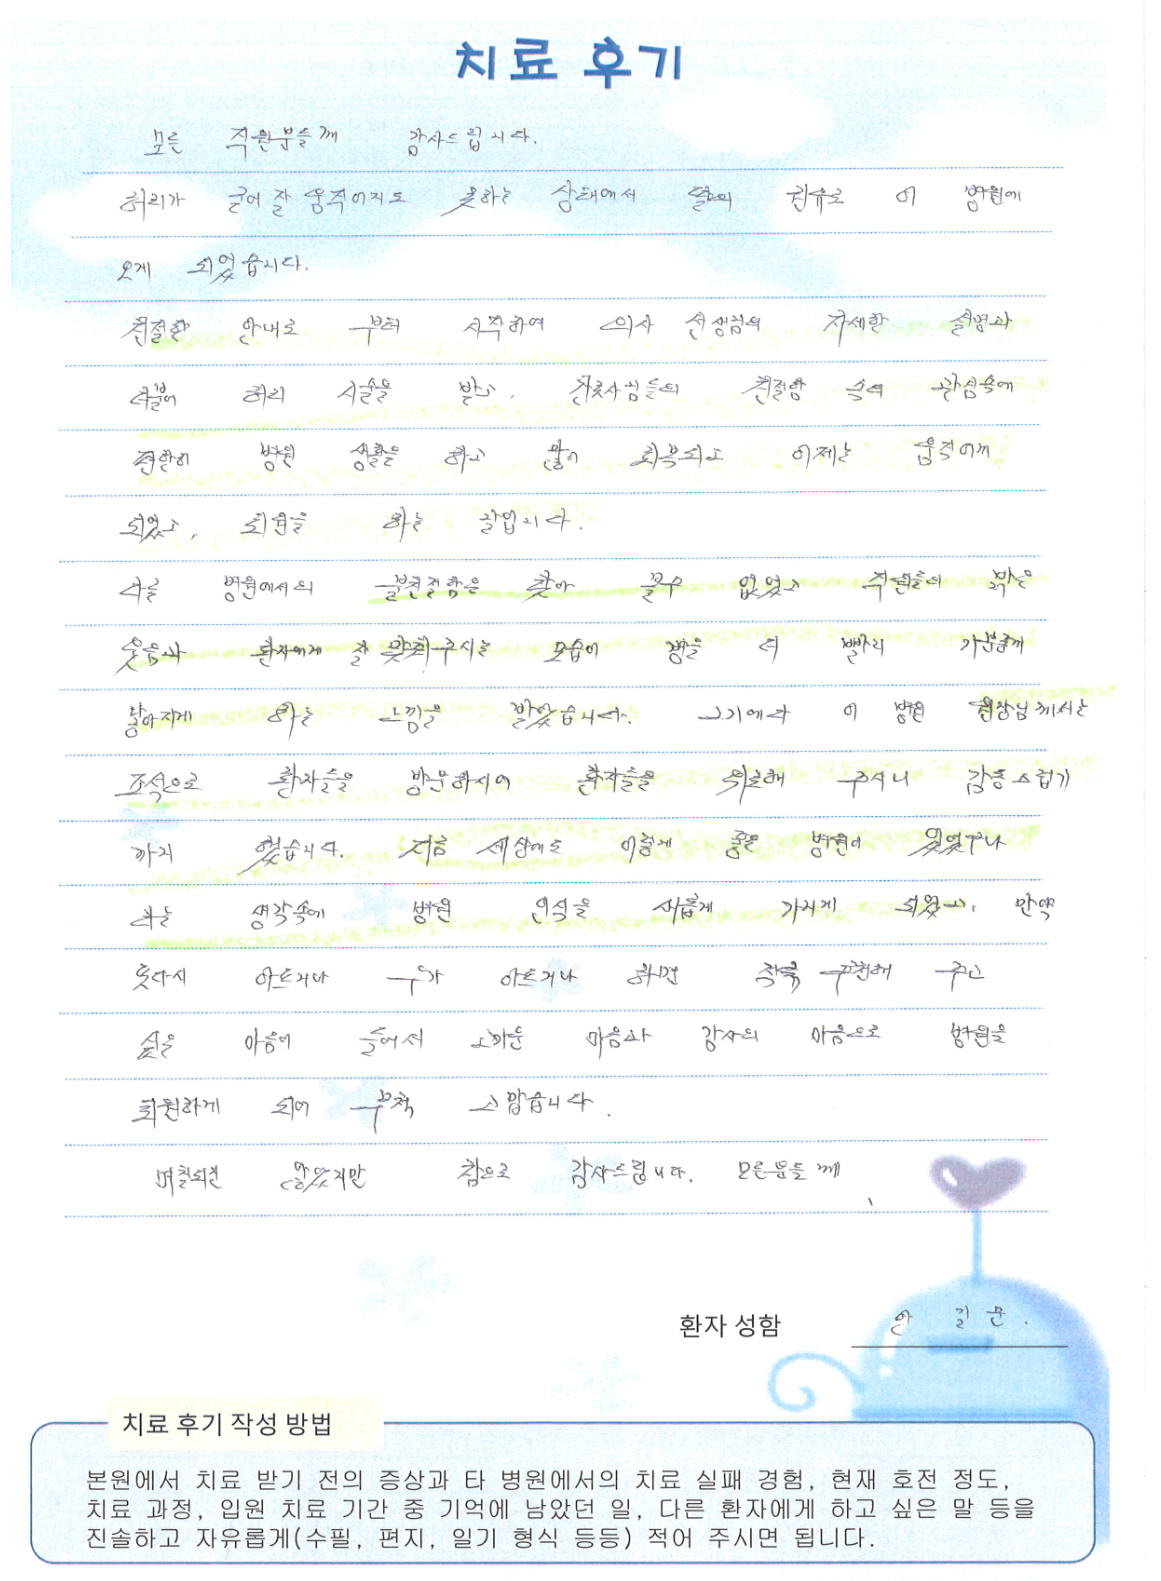 치료 후기
모든 직원분들께 감사드립니다.
허리가 굳어 잘 움직이지도 못하는 상태에서 딸의 권유로 이 병원에
오게 되었습니다.
친절한 안내로 부터 시작하여 의사 선생님의 자세한 설명과
더불어 허리 시술을 받고, 간호사님들의 친절함 속의 관심속에
편안히 병원 생활을 하고 많이 회복되고 이제는 움직이게
되었고, 퇴원을 하는 날입니다.
나는 병원에서의 불친절함을 찾아 볼수 없었고 직원들의 밝은
웃음과 환자에게 잘 맞춰 주시는 모습이 병을 더 빨리 가볍게
낳아지게 하는 느낌을 받았습니다. 그기에다 이 병원 원장님께서는
조석으로 환자들을 방문하시어 환자들을 위로해 주시니 감동스럽기
까지 했습니다. 지금 세상에도 이렇게 좋은 병원이 있었구나
하는 생각속에 병원 인식을 새롭게 가지게 되었고, 만약
또다시 아프거나 누가 아프거나 하면 적극 추천해 주고
싶은 마음이 들어서 고마운 마음과 감사의 마음으로 병원을
퇴원하게 되어 무척 고맙습니다.
며칠되진 않았지만 참으로 감사드립니다. 모든분들께
환자 성함 안 길 문.
치료 후기 작성 방법
본원에서 치료 받기 전의 증상과 타 병원에서의 치료 실패 경험, 현재 호전 정도,
치료 과정, 입원 치료 기간 중 기억에 남았던 일, 다른 환자에게 하고 싶은 말 등을
진솔하고 자유롭게(수필, 편지, 일기 형식 등등) 적어 주시면 됩니다.